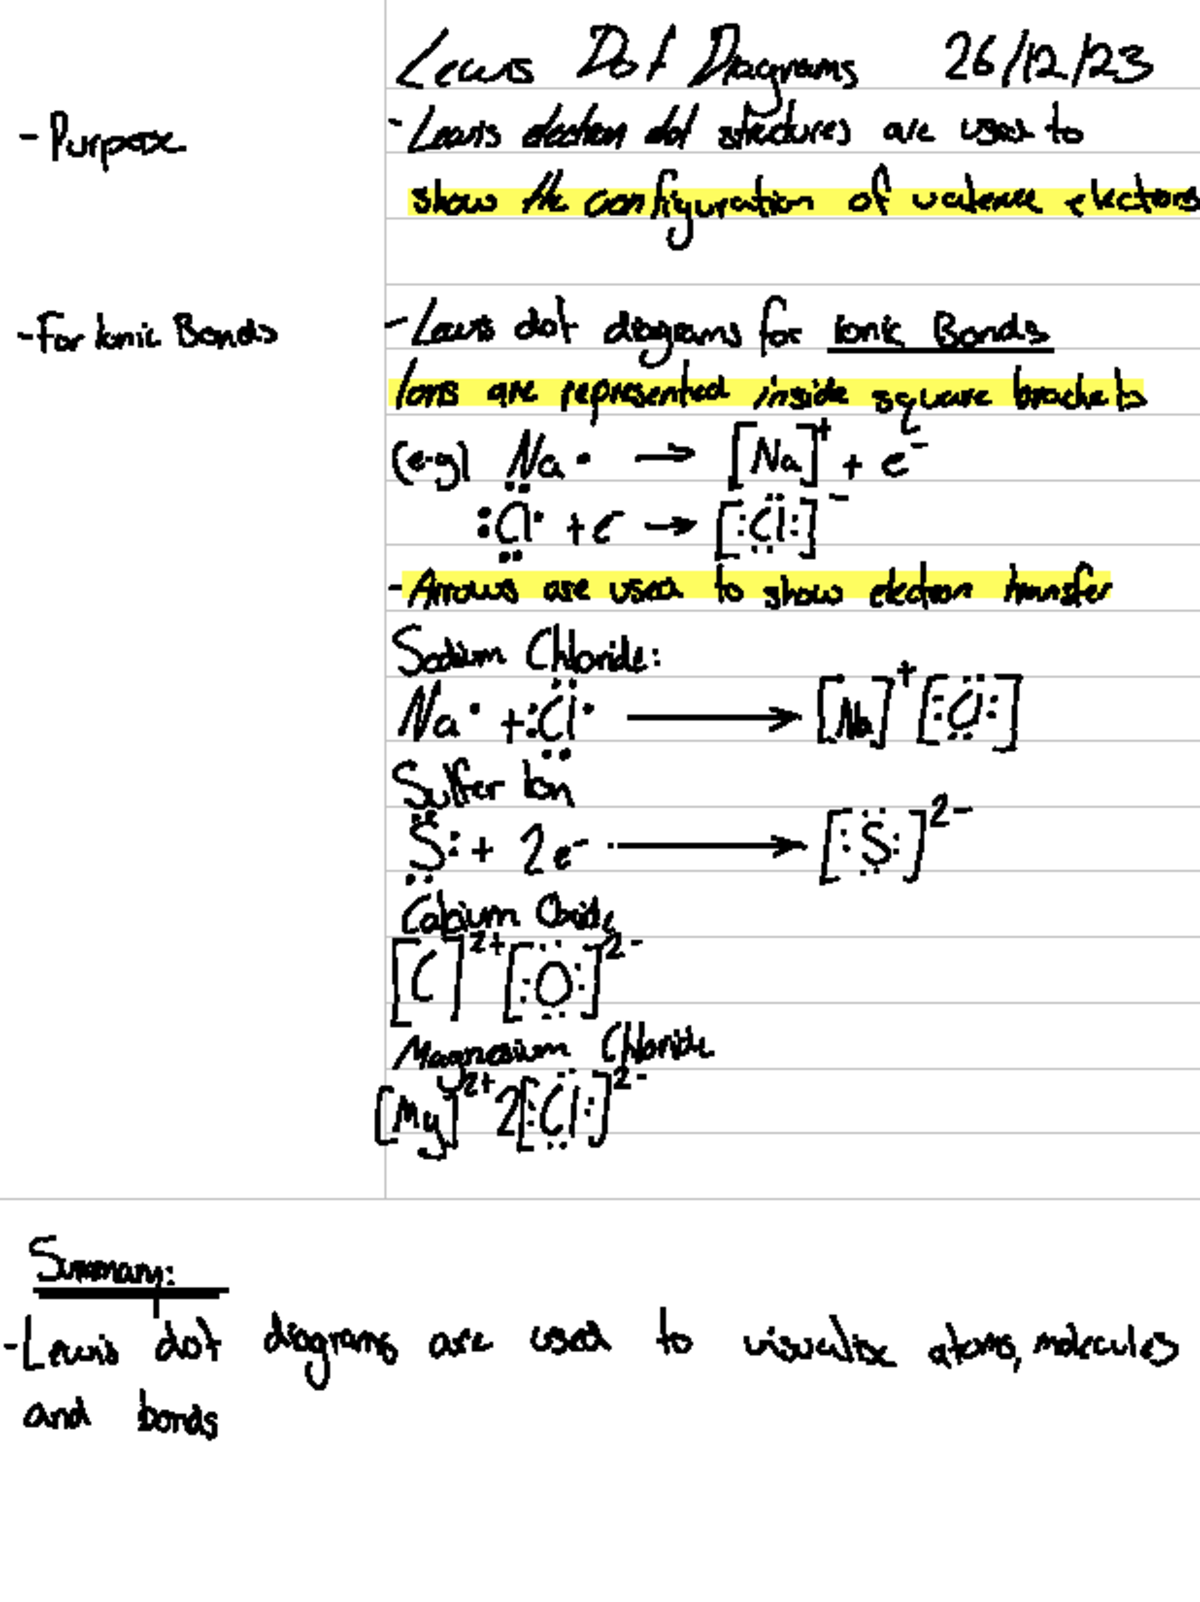 Lewis Dot Diagrams 26/12/23
- Purpose
- Lewis electron dot structures are used to
show the configuration of valence electrons
- For Ionic Bonds
- Lewis dot diagrams for Ionic Bonds
Ions are represented inside square brackets
(e.g) Na• → [Na]⁺ + e⁻
:C̤̈l· + e⁻ → [:C̤̈l:]⁻
- Arrows are used to show electron transfer
Sodium Chloride:
Na· + :C̤̈l· → [Na]⁺ [:C̤̈l:]
Sulfer Ion
S̤̈: + 2e⁻ → [:S̤̈:]²⁻
Calcium Oxide
[C]²⁺ [:Ö̤:]²⁻
Magnesium Chloride
[Mg]²⁺ 2[:C̤̈l:]²⁻
Summary:
- Lewis dot diagrams are used to visualise atoms, molecules
and bonds